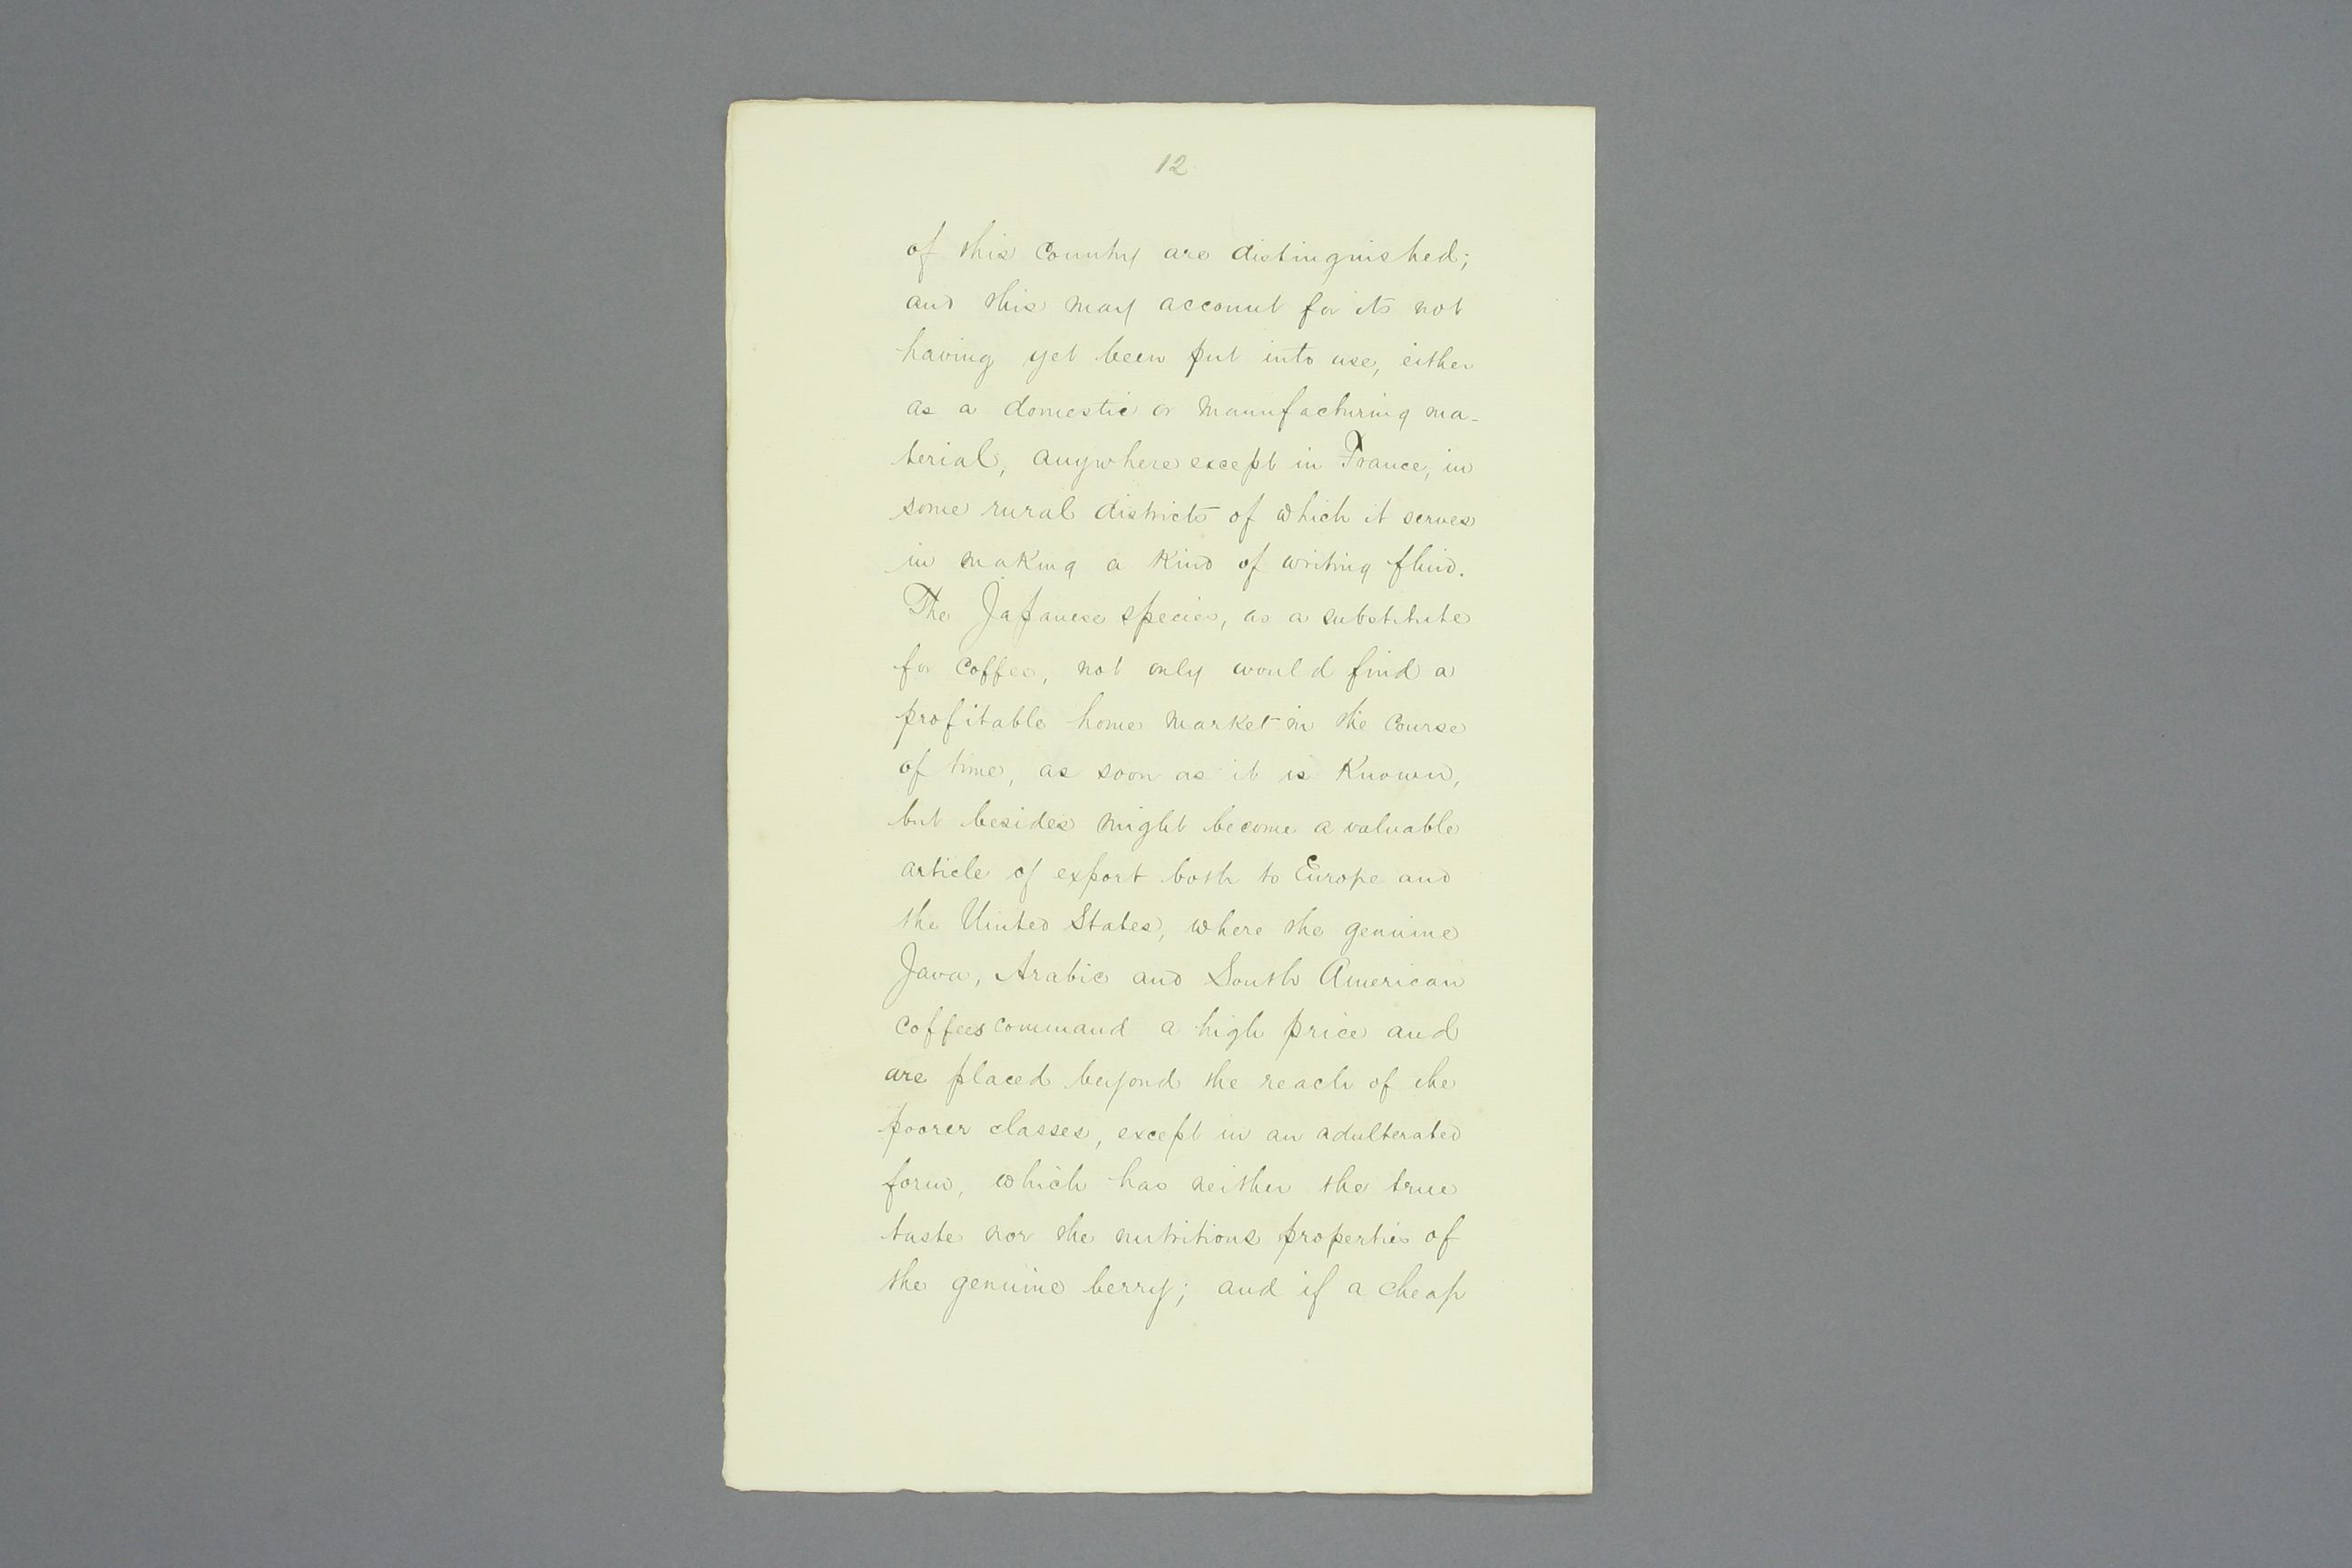 12
of this country are distinguished;
and this may account for its not
having yet been put into use, either
as a domestic or manufacturing ma-
terial, anywhere except in France, in
some rural districts of which it serves
in making a kind of writing fluid.
The Japanese species, as a substitute
for coffee, not only would find a
profitable home market in the course
of time, as soon as it is known,
but besides might become a valuable
article of export both to Europe and
the United States, where the genuine
Java, Arabic and South American
coffees command a high price and
are placed beyond the reach of the
poorer classes, except in an adulterated
form, which has neither the true
taste nor the nutritious properties of
the genuine berry; and if a cheap